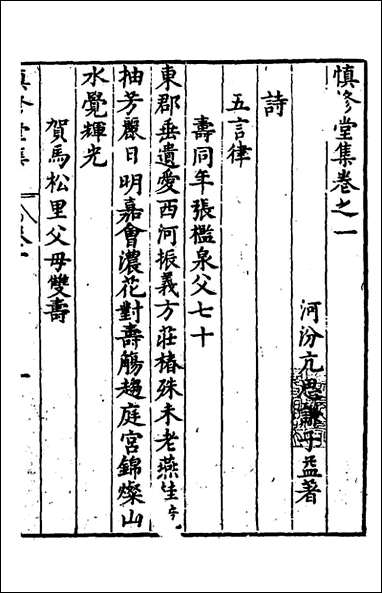 慎修堂集卷之一
河汾亢思謙子益著
詩
五言律
壽同年張檻泉父七十
東郡垂遺愛西河振義方莊椿殊未老燕生
抽芳麗日明嘉會濃花對壽觴趨庭宮錦燦山
水覺輝光
賀馬松里父母雙壽
慎修堂集